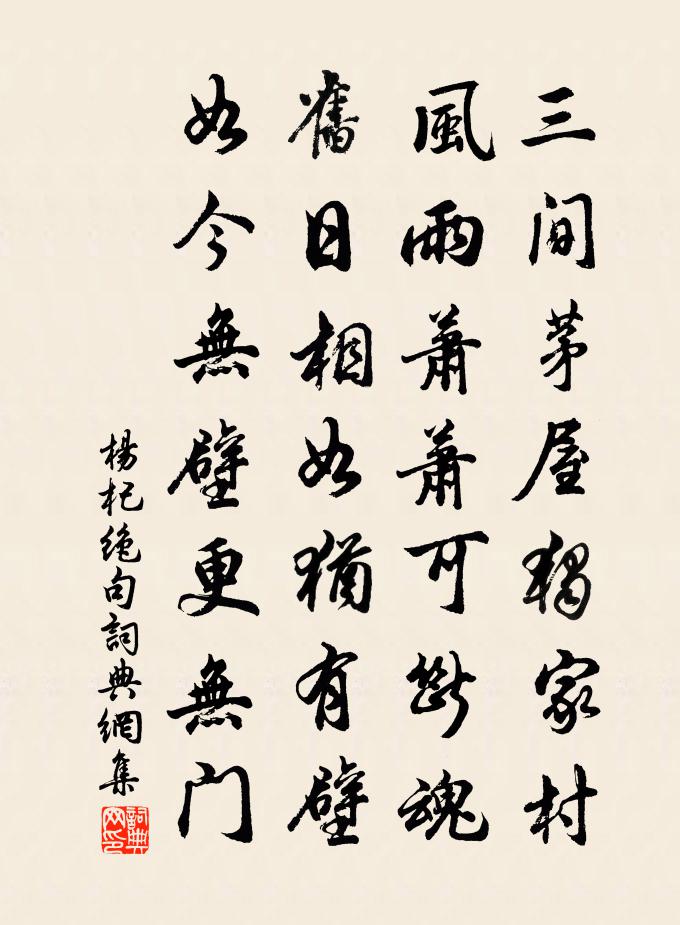 三間茅屋獨家村
風雨蕭蕭可斷魂
舊日相如猶有壁
如今無壁更無門
楊杞絶句詞典網集
詞典網印